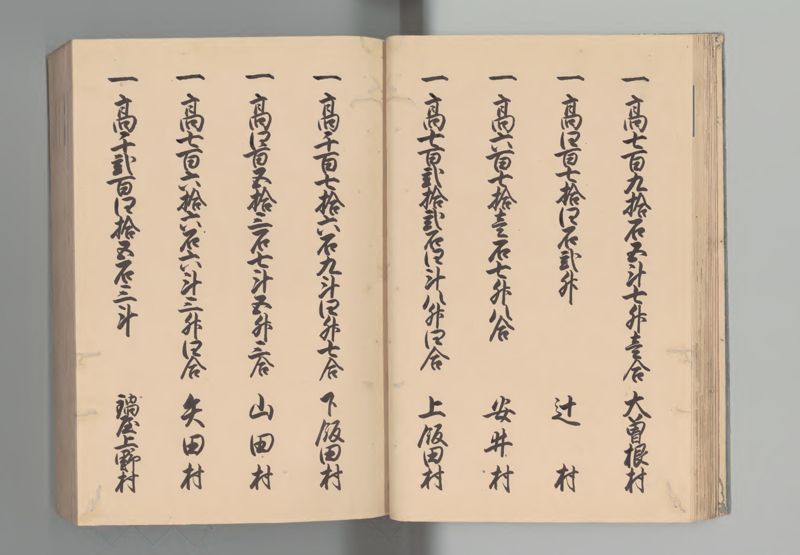 一高七百九拾石五斗七升壱合 大曽根村
一高四百七拾四石弐升 辻村
一高六百七拾壱石七升八合 安井村
一高七百弐拾弐石四斗八升四合 上飯田村
一高千百七拾六石九斗四升七合 下飯田村
一高四百五拾三石七斗五升三合 山田村
一高七百六拾六石六斗三升四合 矢田村
一高千弐百四拾五石三斗 鍋屋上野村